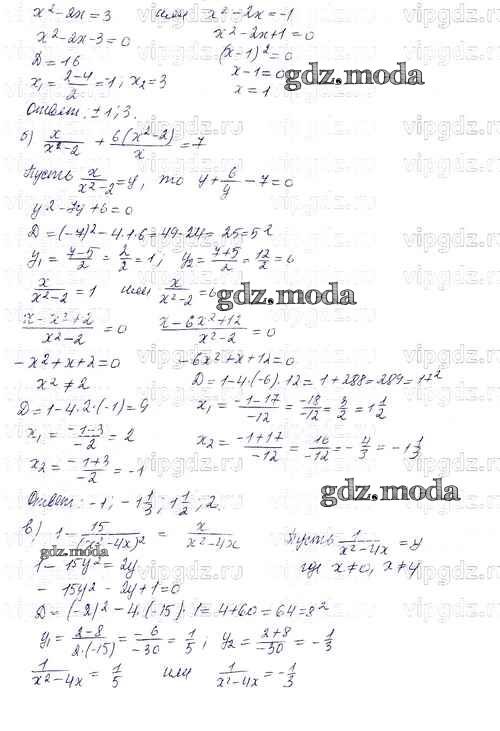 x²-2x=3 или x²-2x=-1
x²-2x-3=0 x²-2x+1=0
D=16 (x-1)²=0
x₁=(2-4)/2=-1; x₂=3 x-1=0
x=1
gdz.moda
Ответ: ±1; 3.
б) x/(x²-2) + 6(x²-2)/x = 7
Пусть x/(x²-2)=y, то y+6/y-7=0
y²-7y+6=0
D=(-7)²-4·1·6=49-24=25=5²
y₁=(7-5)/2=2/2=1; y₂=(7+5)/2=12/2=6
x/(x²-2)=1 или x/(x²-2)=6
gdz.moda
(x-x²+2)/(x²-2)=0 (x-6x²+12)/(x²-2)=0
-x²+x+2=0 -6x²+x+12=0
x²≠2 D=1-4·(-6)·12=1+288=289=17²
D=1-4·2·(-1)=9 x₁=(-1-17)/-12=-18/-12=3/2=1 1/2
x₁=(-1-3)/-2=2 x₂=(-1+17)/-12=16/-12=-4/3=-1 1/3
x₂=(-1+3)/-2=-1
gdz.moda
Ответ: -1; -1 1/3; 1 1/2; 2.
в) 1-15/(x²-4x)²=x/(x²-4x) Пусть 1/(x²-4x)=y
gdz.moda
1-15y²=2y где x≠0, x≠4
-15y²-2y+1=0
D=(-2)²-4·(-15)·1=4+60=64=8²
y₁=(2-8)/(2·(-15))=-6/-30=1/5; y₂=(2+8)/-30=-1/3
1/(x²-4x)=1/5 или 1/(x²-4x)=-1/3